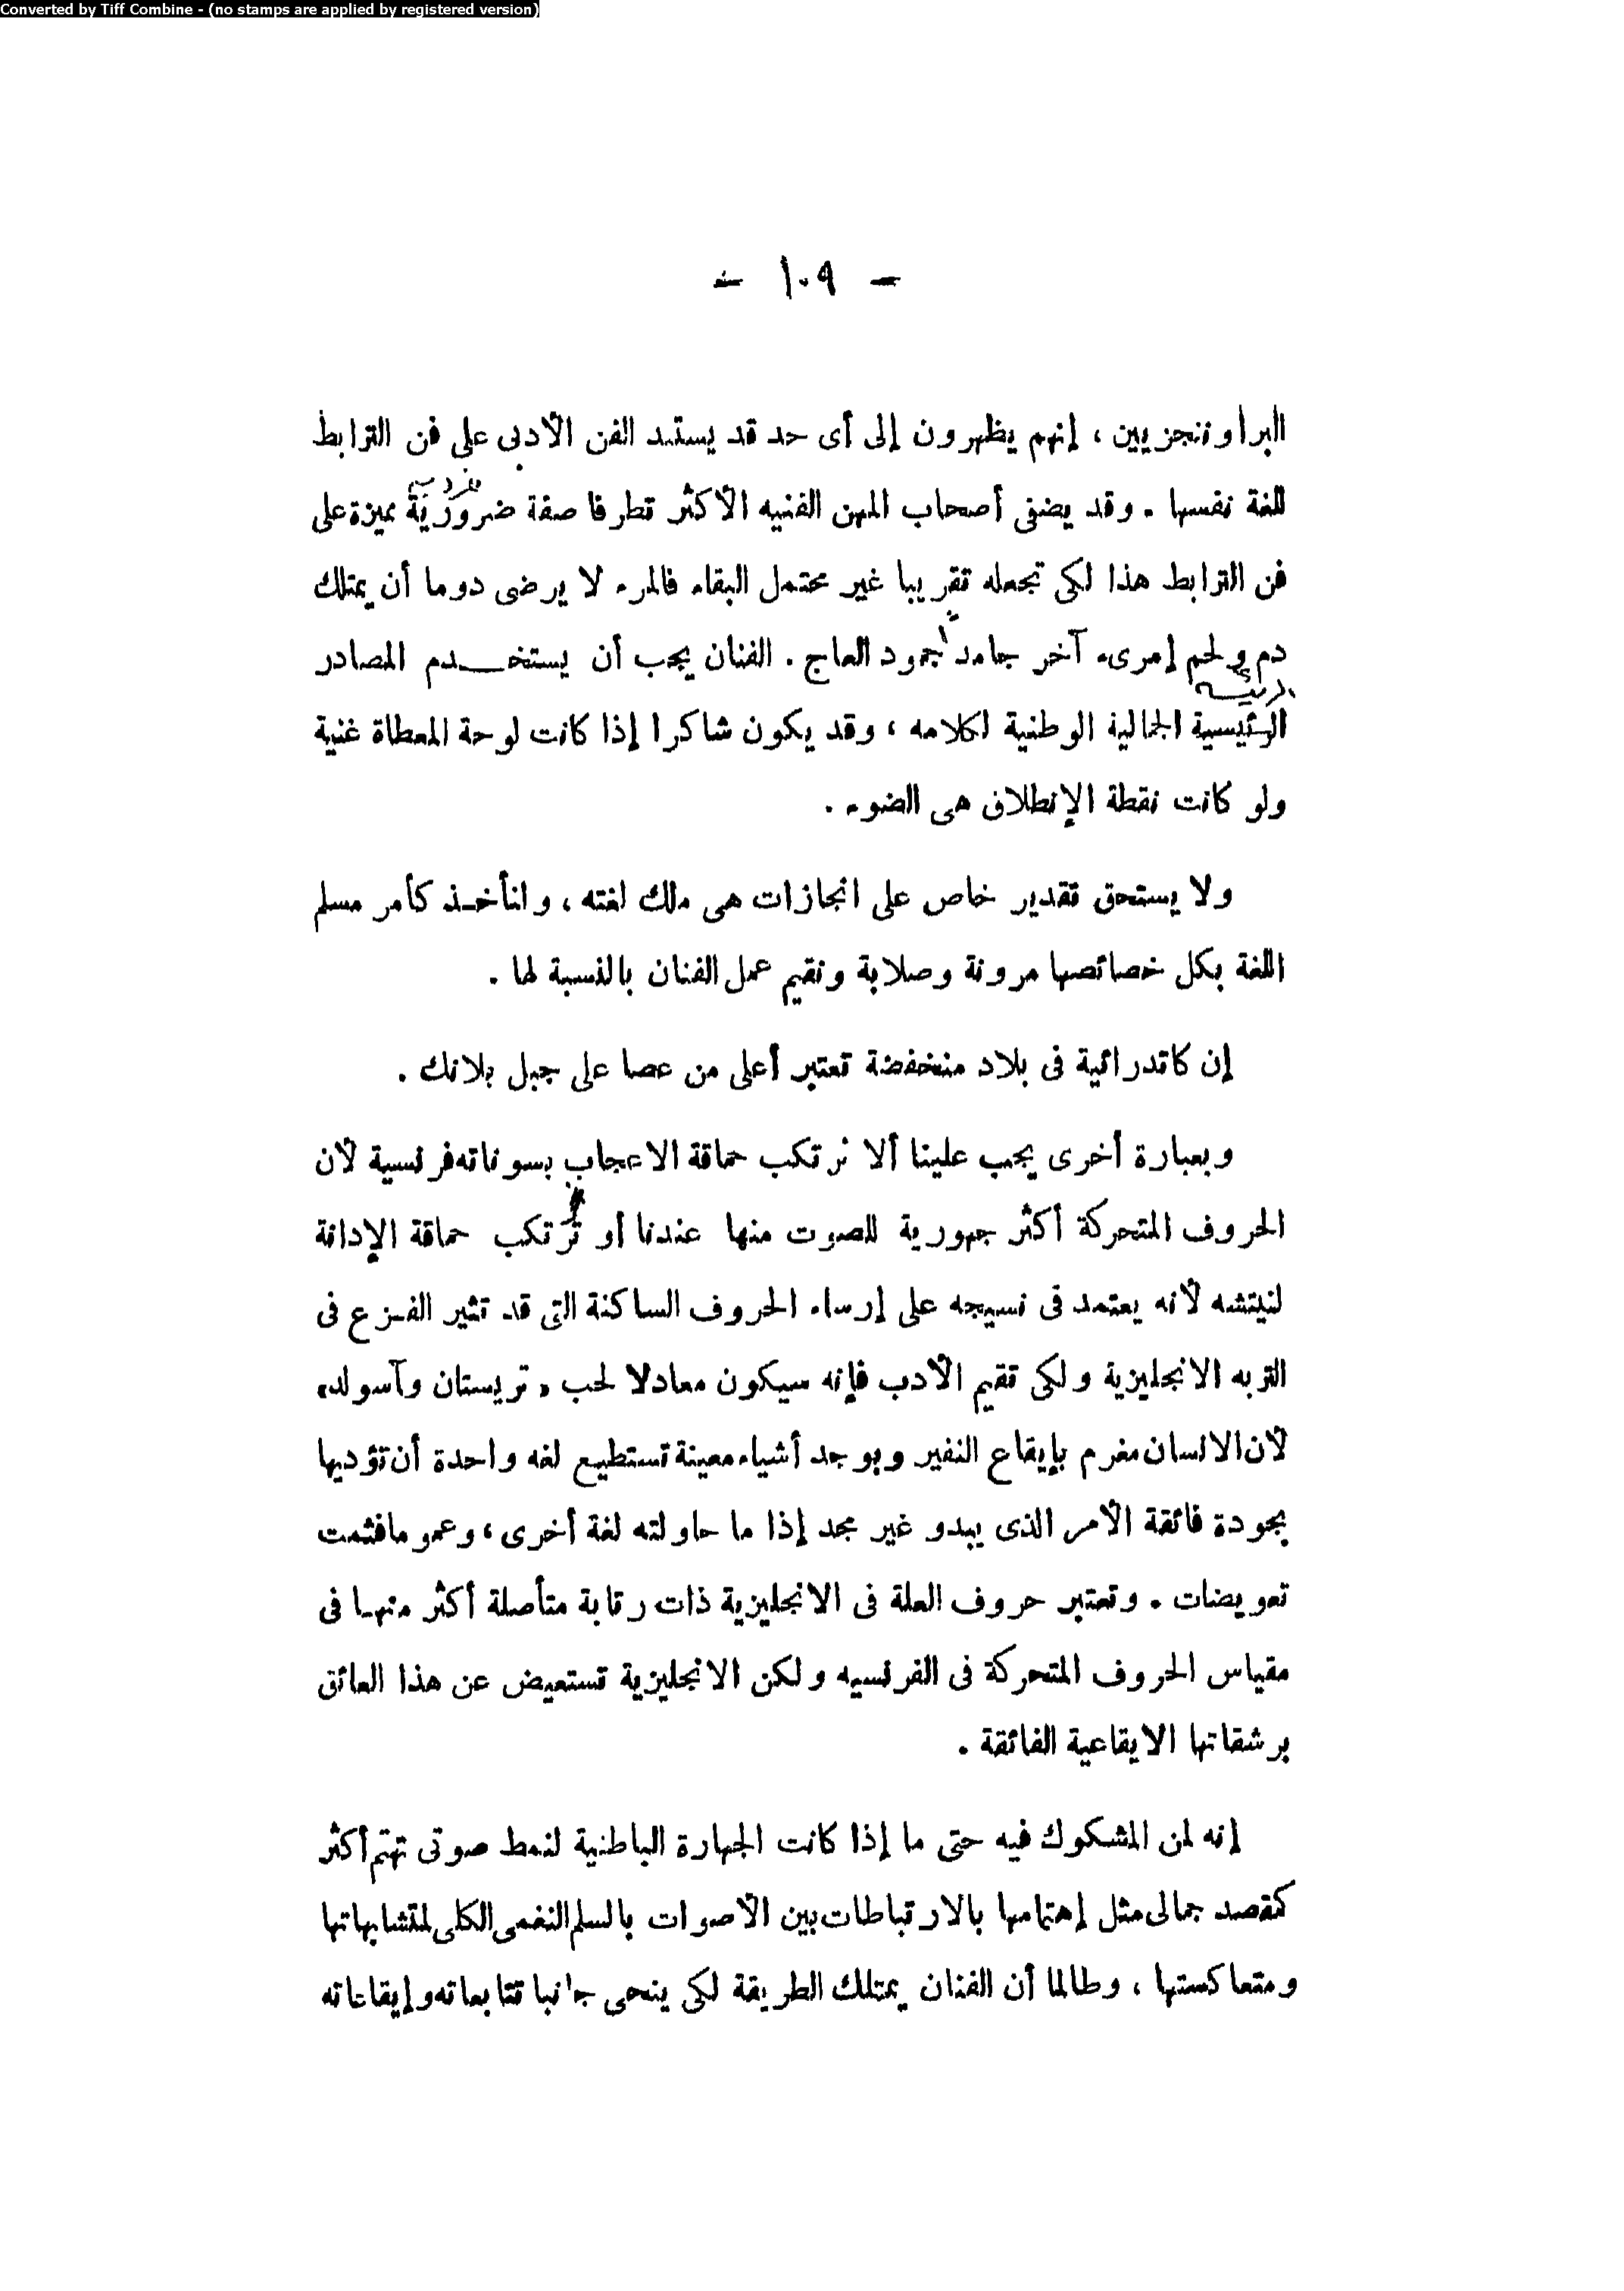 Converted by Tiff Combine - (no stamps are applied by registered version)
- ١٠٩ -
البراوننجزيين ، إنهم يظهرون إلى أى حد قد يستند الفن الأدبى على فن الترابط
للغة نفسها . وقد يضنى أصحاب المهن الفنيه الأكثر تطرفا صفة ضرورية مميزة على
فن الترابط هذا لكى تجعله تقريبا غير محتمل البقاء فالمرء لا يرضى دوما أن يمتلك
دم ولحم إمرىء آخر جامد جمود العاج . الفنان يجب أن يستخدم المصادر
الرئيسية الجمالية الوطنية لكلامه ، وقد يكون شاكرا إذا كانت لوحة المعطاة غنية
ولو كانت نقطة الإنطلاق هى الضوء .
ولا يستحق تقدير خاص على انجازات هى ملك لغته ، ولنأخذ كأمر مسلم
اللغة بكل خصائصها مرونة وصلابة ونقيم عمل الفنان بالنسبة لها .
إن كاتدرائية فى بلاد منخفضة تعتبر أعلى من عصا على جبل بلانك .
وبعبارة أخرى يجب علينا ألا نرتكب حماقة الاعجاب بسوناته فرنسية لأن
الحروف المتحركة أكثر جهورية للصوت منها عندنا أو نرتكب حماقة الإدانة
لنيتشه لأنه يعتمد فى نسيجه على إرساء الحروف الساكنة التى قد تثير الفزع فى
التربه الانجليزية ولكى تقيم الأدب فإنه سيكون معادلا لحب « تريستان وآسولد»
لأن الالسان مغرم بإيقاع النفير وبوجد أشياء معينة تستطيع لغه واحدة أن تؤديها
بجودة فائقة الأمر الذى يبدو غير مجد إذا ما حاولته لغة أخرى ، وعموما فثمت
تعويضات . وتعتبر حروف العلة فى الانجليزية ذات رتابة متأصلة أكثر منها فى
مقياس الحروف المتحركة فى الفرنسيه ولكن الانجليزية تستعيض عن هذا العائق
برشقاتها الايقاعية الفائقة .
إنه لمن المشكوك فيه حتى ما إذا كانت الجهارة الباطنية لنمط صوتى تهتم أكثر
كقصد جمالى مثل إهتمامها بالارتباطات بين الأصوات بالسلم النغمى الكلى لمتشابهاتها
ومتعاكستها ، وطالما أن الفنان يمتلك الطريقة لكى ينحى جانبا تتابعاته وإيقاعاته